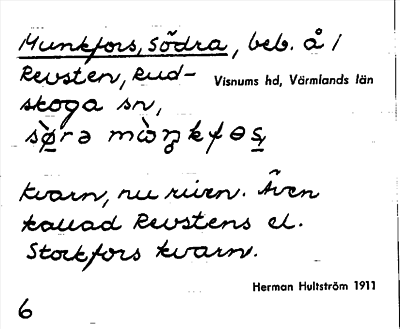 Munkfors, Södra, beb. å /
Revsten, Rud-
Visnums hd, Värmlands län
skoga sn,
kvarn, nu riven. Även
kallad Revstens el.
Stockfors kvarn.
Herman Hultström 1911
6